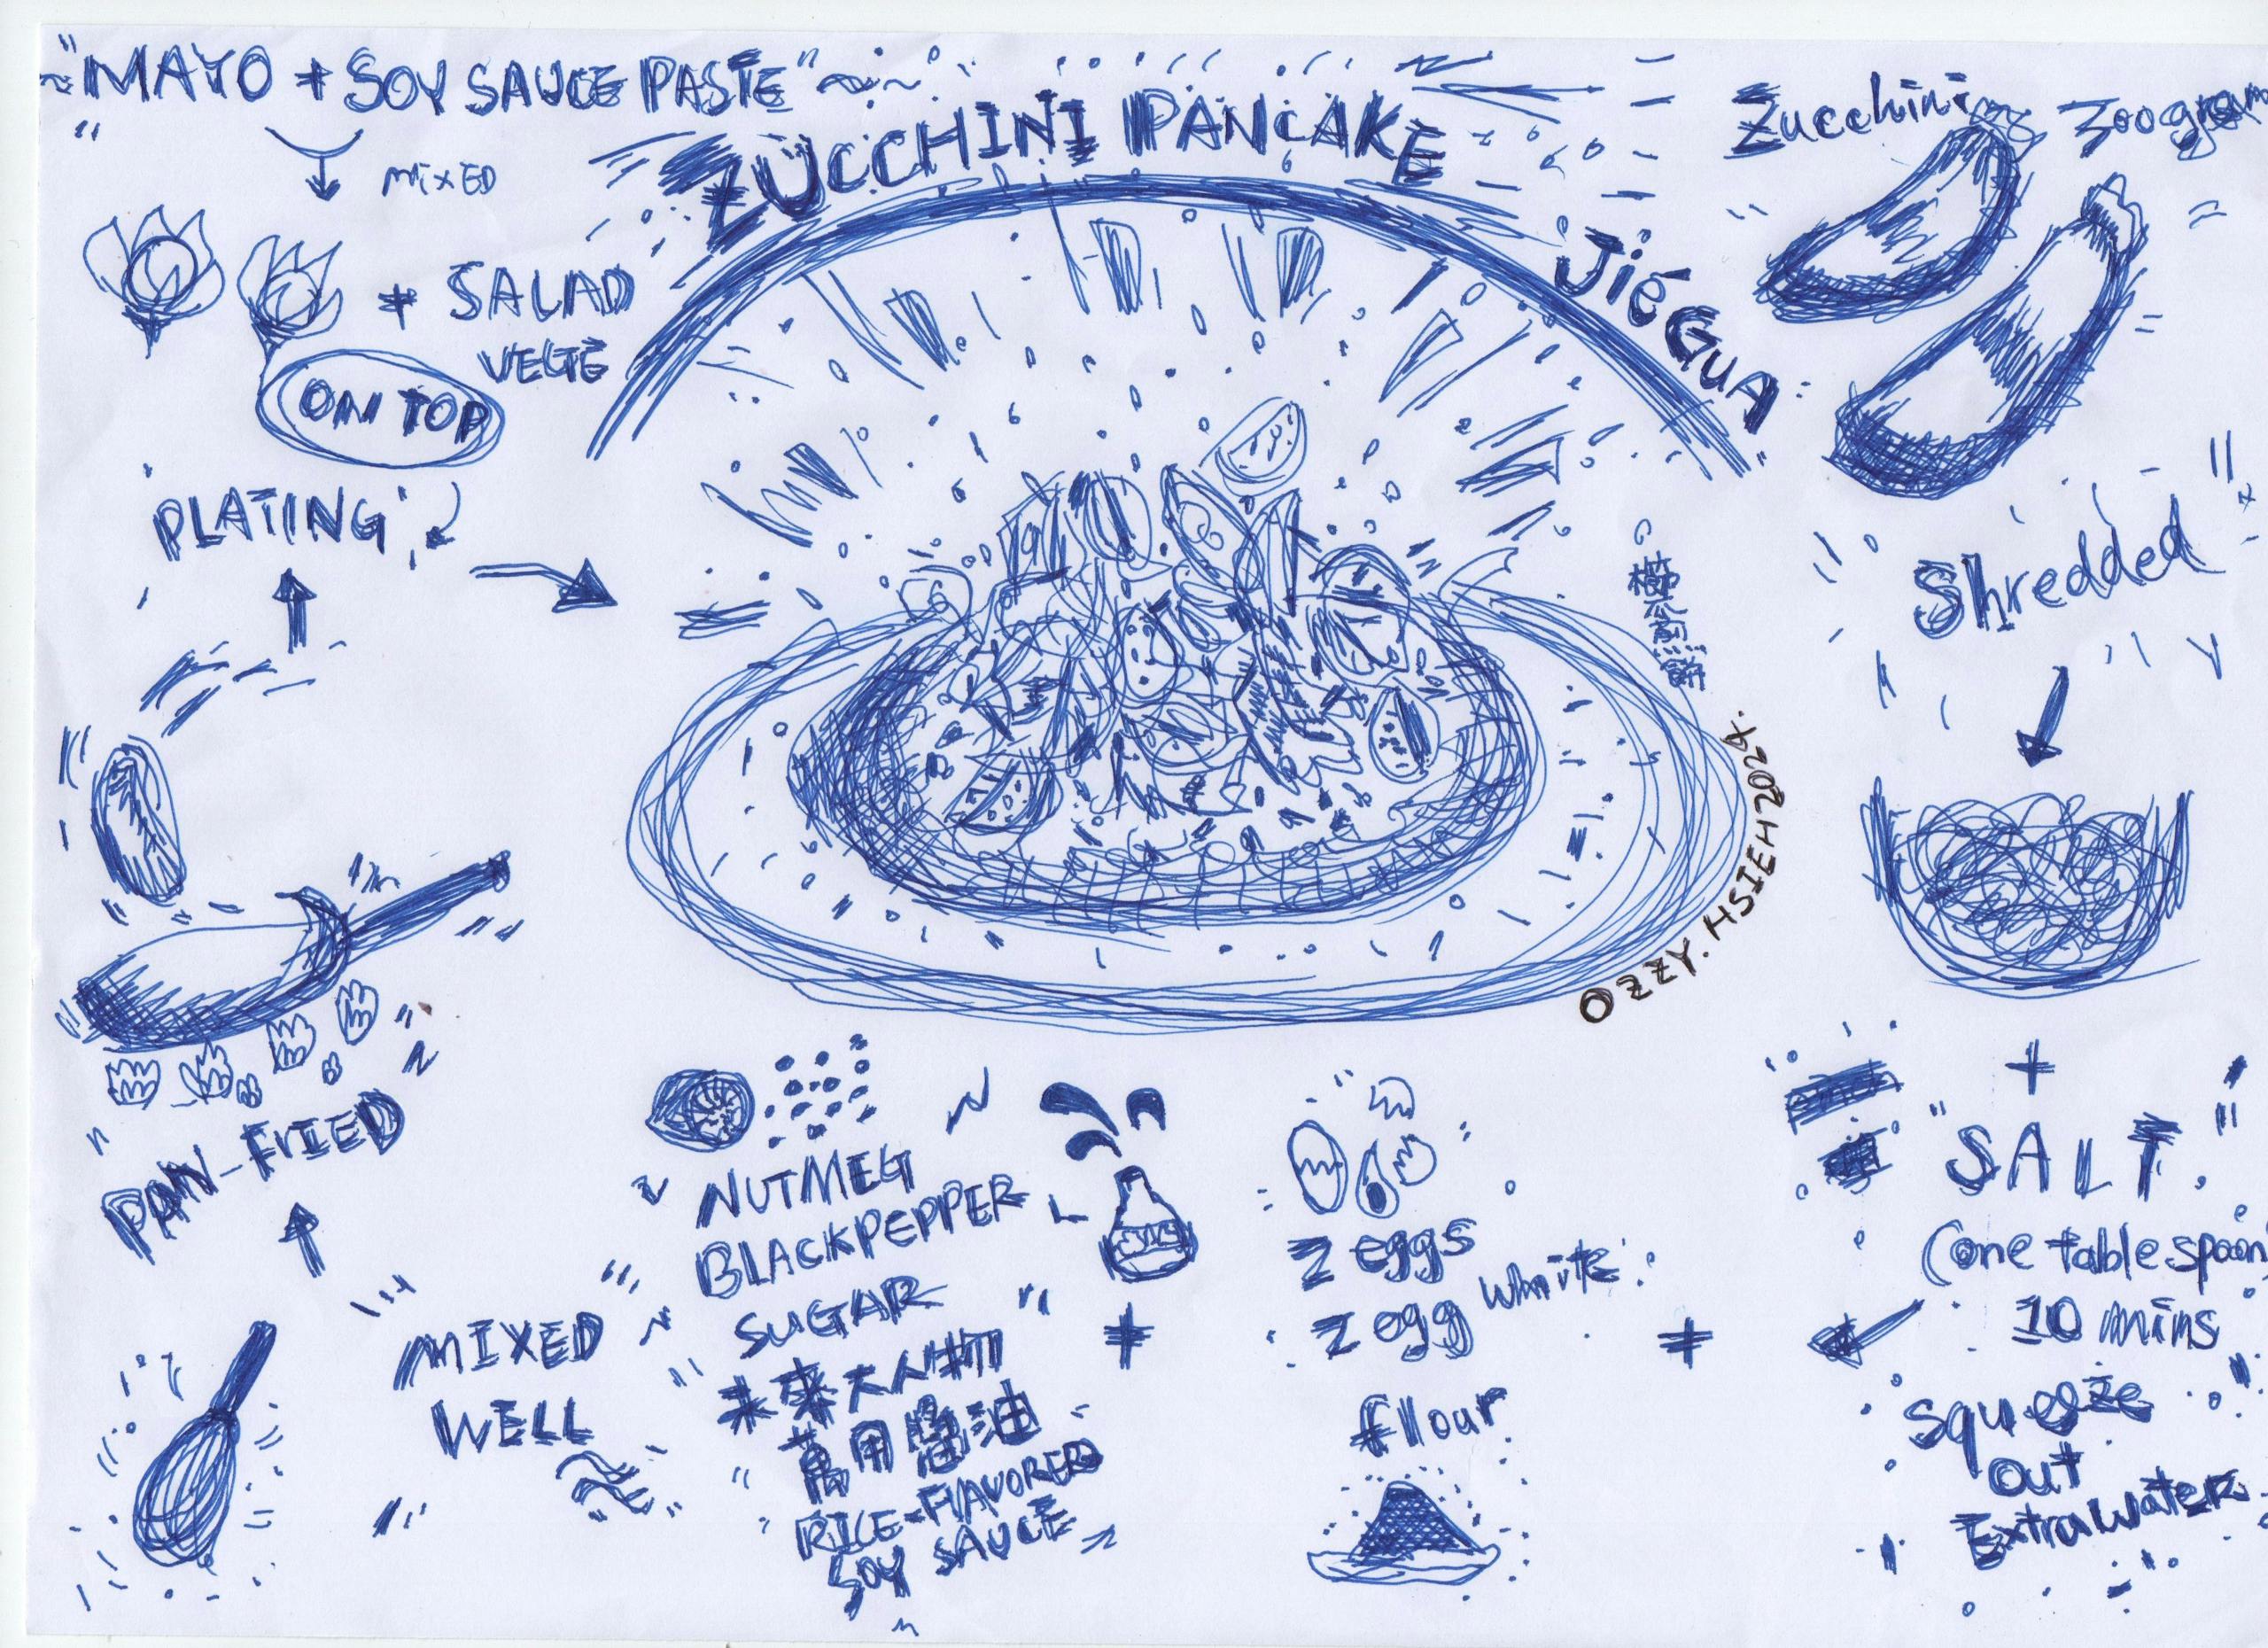 "MAYO + SOY SAUCE PASTE"
MIXED
+ SALAD
ON TOP
PLATING
ZUCCHINI PANCAKE
JiéGUA
櫛瓜煎餅
OZZY.HSIEH2024.
Zucchini 300gram
Shredded
+
"SALT"
(one table spoon)
10 mins
squeeze
out
Extra water
+
2 eggs
2 egg white
flour
+
NUTMEG
BLACKPEPPER
SUGAR
未來大人物
萬用醬油
RICE-FLAVORED
SOY SAUCE
MIXED
WELL
PAN-FRIED